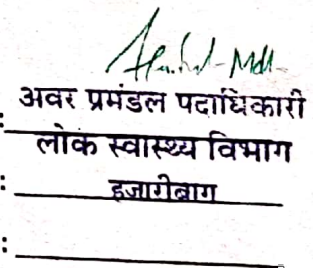 अवर प्रमंडल पदाधिकारी
: लोक स्वास्थ्य विभाग
: हजारीबाग
: